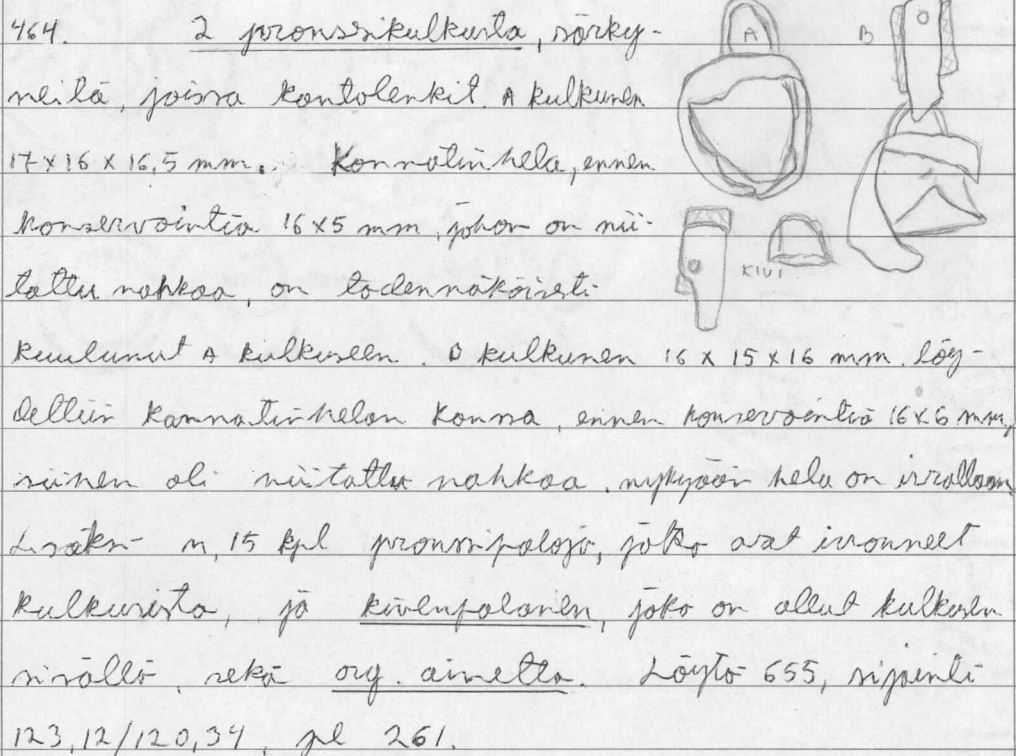 464. 2 pronssikulkusta, särky-
neitä, joissa kantolenkit. A kulkunen
17 x 16 x 16,5 mm. Kannatinhela, ennen
konservointia 16 x 5 mm, johon on nii-
tattu nahkaa, on todennäköisesti
kuulunut A kulkuseen. B kulkunen 16 x 15 x 16 mm löy-
dettiin kannatinhelan kanssa, ennen konservointia 16 x 6 mm,
siihen oli niitattu nahkaa, nykyään hela on irrallaan.
Lisäksi n, 15 kpl pronssipaloja, jotka ovat irronneet
kulkusista, ja kivenpalanen, joka on ollut kulkusen
sisällä, sekä org. ainetta. Löytö 655, sijainti
123,12/120,34, pl 261.
A
B
KIVI